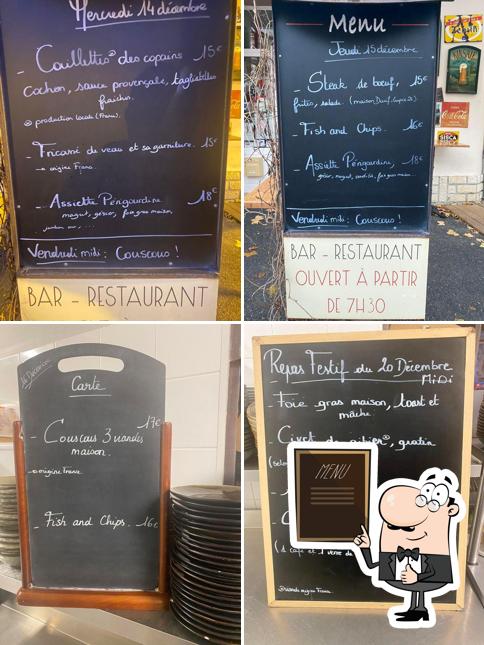 Mercredi 14 décembre
- Caillettes® des copains 15€
Cochon, sauce provençale, tagliatelles
fraiches.
production locale (France).
- Fricassé de veau et sa garniture. 15€
→ origine France.
- Assiette Périgourdine 18€
magret, gésier, foie gras maison,
Vendredi midi : Couscous !
BAR - RESTAURANT
Menu
Jeudi 15 décembre
- Steak de boeuf, 15€
frites, salade.
- Fish and Chips. 16€
- Assiette Périgourdine, 18€
gésier, magret,
Vendredi midi : Couscous !
BAR - RESTAURANT
OUVERT À PARTIR
DE 7H30
Coca-Cola
SISCA
16 Décembre
Carte
17€
- Couscous 3 viandes
maison.
→ origine France
- Fish and Chips. 16€
Repas Festif du 20 Décembre
Midi
- Foie gras maison, toast et
mâche.
- Civet de gibier®, gratin
MENU
(1 café et 1 verre de